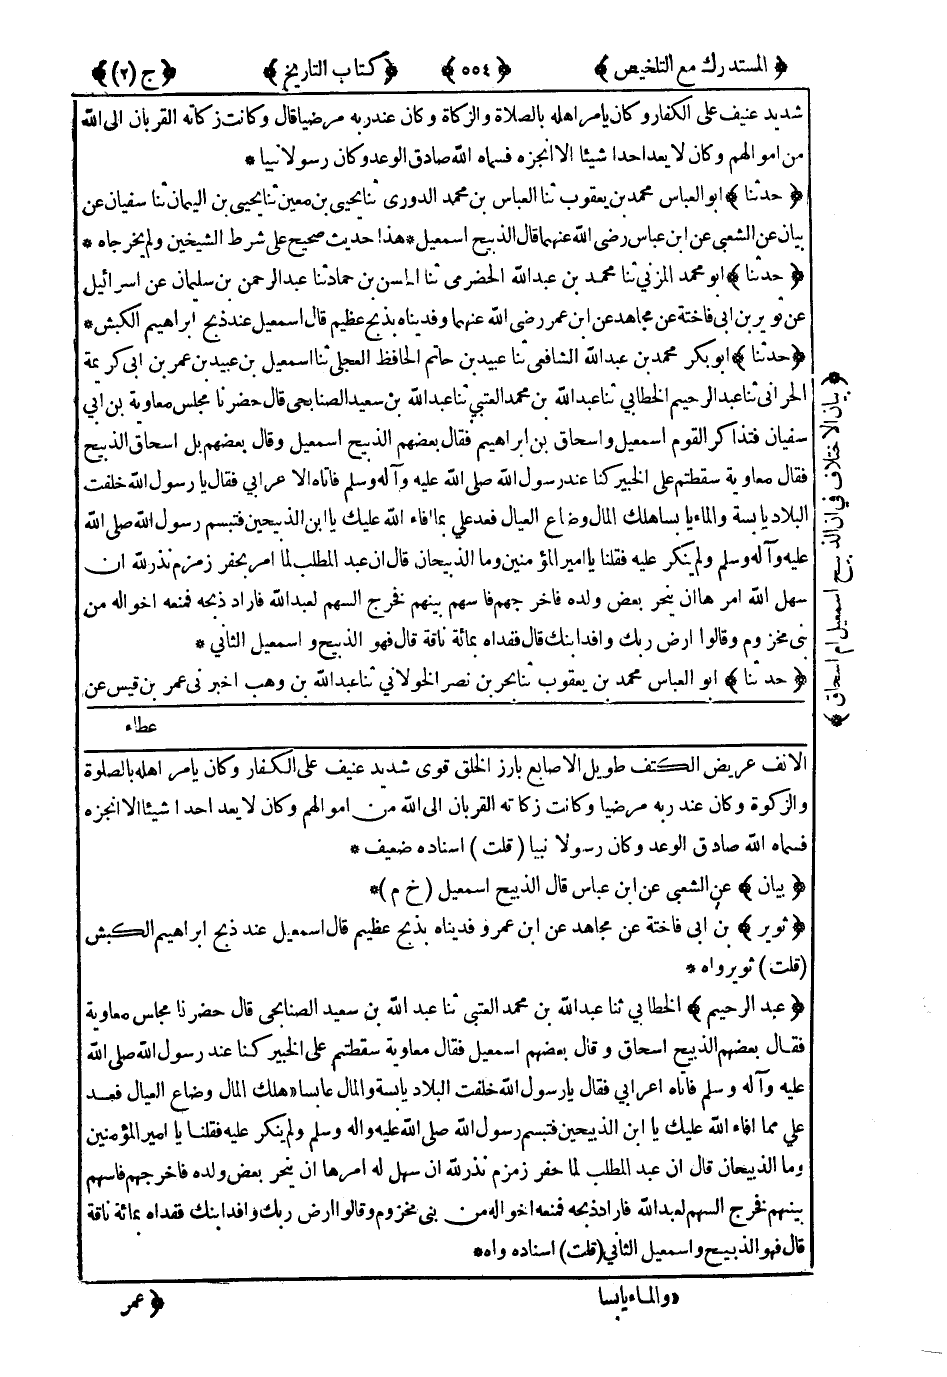 ﴿ المستدرك مع التلخيص ﴾ ﴿ ٥٥٤ ﴾ ﴿ كتاب التاريخ ﴾ ﴿ ج (٢) ﴾
شديد عنيف على الكفار وكان يامر اهله بالصلاة والزكاة وكان عند ربه مرضيا قال وكانت زكاته القربان الى الله
من اموالهم وكان لا يعد احدا شيئا الا انجزه فسماه الله صادق الوعد وكان رسولا نبيا *
﴿ حدثنا ﴾ ابو العباس محمد بن يعقوب ثنا العباس بن محمد الدورى ثنا يحيى بن معين ثنا يحيى بن اليمان ثنا سفيان عن
بيان عن الشعبي عن ابن عباس رضى الله عنهما قال الذبيح اسمعيل * هذا حديث صحيح على شرط الشيخين ولم يخرجاه *
﴿ حدثنا ﴾ ابو محمد المزنى ثنا محمد بن عبد الله الحضرمى ثنا الحسن بن حماد ثنا عبد الرحمن بن سليمان عن اسرائيل
عن ثوير بن ابى فاختة عن مجاهد عن ابن عمر رضى الله عنهما وفديناه بذبح عظيم قال اسمعيل عند ذبح ابراهيم الكبش *
﴿ حدثنا ﴾ ابو بكر محمد بن عبد الله الشافعى ثنا عبيد بن حاتم الحافظ العجلى ثنا اسمعيل بن عبيد بن عمر بن ابى كريمة
الحرانى ثنا عبد الرحيم الخطابي ثنا عبد الله بن محمد العتبي ثنا عبد الله بن سعيد الصنابحى قال حضرنا مجلس معاوية بن ابي
سفيان فتذاكر القوم اسمعيل واسحاق بن ابراهيم فقال بعضهم الذبيح اسمعيل وقال بعضهم بل اسحاق الذبيح
فقال معاوية سقطتم على الخبير كنا عند رسول الله صلى الله عليه وآله وسلم فاتاه الاعرابي فقال يا رسول الله خلفت
البلاد يابسة والماء يابسا هلك المال وضاع العيال فعد علي بما افاء الله عليك يا ابن الذبيحين فتبسم رسول الله صلى الله
عليه وآله وسلم ولم ينكر عليه فقلنا يا امير المؤمنين وما الذبيحان قال ان عبد المطلب لما امر بحفر زمزم نذر لله ان
سهل الله امرها ان ينحر بعض ولده فاخرجهم فاسهم بينهم فخرج السهم لعبد الله فاراد ذبحه فمنعه اخواله من
بنى مخزوم وقالوا ارض ربك وافد ابنك قال ففداه بمائة ناقة قال فهو الذبيح واسمعيل الثاني *
﴿ حدثنا ﴾ ابو العباس محمد بن يعقوب ثنا بحر بن نصر الخولاني ثنا عبد الله بن وهب اخبرنى عمر بن قيس عن
عطاء
﴿ بيان الاختلاف فى ان الذبيح اسمعيل ام اسحاق ﴾
الانف عريض الكتف طويل الاصابع بارز الخلق قوى شديد عنيف على الكفار وكان يامر اهله بالصلوة
والزكوة وكان عند ربه مرضيا وكانت زكاته القربان الى الله من اموالهم وكان لا يعد احدا شيئا الا انجزه
فسماه الله صادق الوعد وكان رسولا نبيا (قلت) اسناده ضعيف *
﴿ بيان ﴾ عن الشعبى عن ابن عباس قال الذبيح اسمعيل (خ م) *
﴿ ثوير ﴾ بن ابى فاختة عن مجاهد عن ابن عمر وفديناه بذبح عظيم قال اسمعيل عند ذبح ابراهيم الكبش
(قلت) ثوير واه *
﴿ عبد الرحيم ﴾ الخطابي ثنا عبد الله بن محمد العتبي ثنا عبد الله بن سعيد الصنابحى قال حضرنا مجلس معاوية
فقال بعضهم الذبيح اسحاق وقال بعضهم اسمعيل فقال معاوية سقطتم على الخبير كنا عند رسول الله صلى الله
عليه وآله وسلم فاتاه اعرابي فقال يا رسول الله خلفت البلاد يابسة والمال عابسا * هلك المال وضاع العيال فعد
علي مما افاء الله عليك يا ابن الذبيحين فتبسم رسول الله صلى الله عليه واله وسلم ولم ينكر عليه فقلنا يا امير المؤمنين
وما الذبيحان قال ان عبد المطلب لما حفر زمزم نذر لله ان سهل له امرها ان ينحر بعض ولده فاخرجهم فاسهم
بينهم فخرج السهم لعبد الله فاراد ذبحه فمنعه اخواله من بنى مخزوم وقالوا ارض ربك وافد ابنك ففداه بمائة ناقة
قال فهو الذبيح واسمعيل الثاني (قلت) اسناده واه *
* والماء يابسا
﴿ عمر